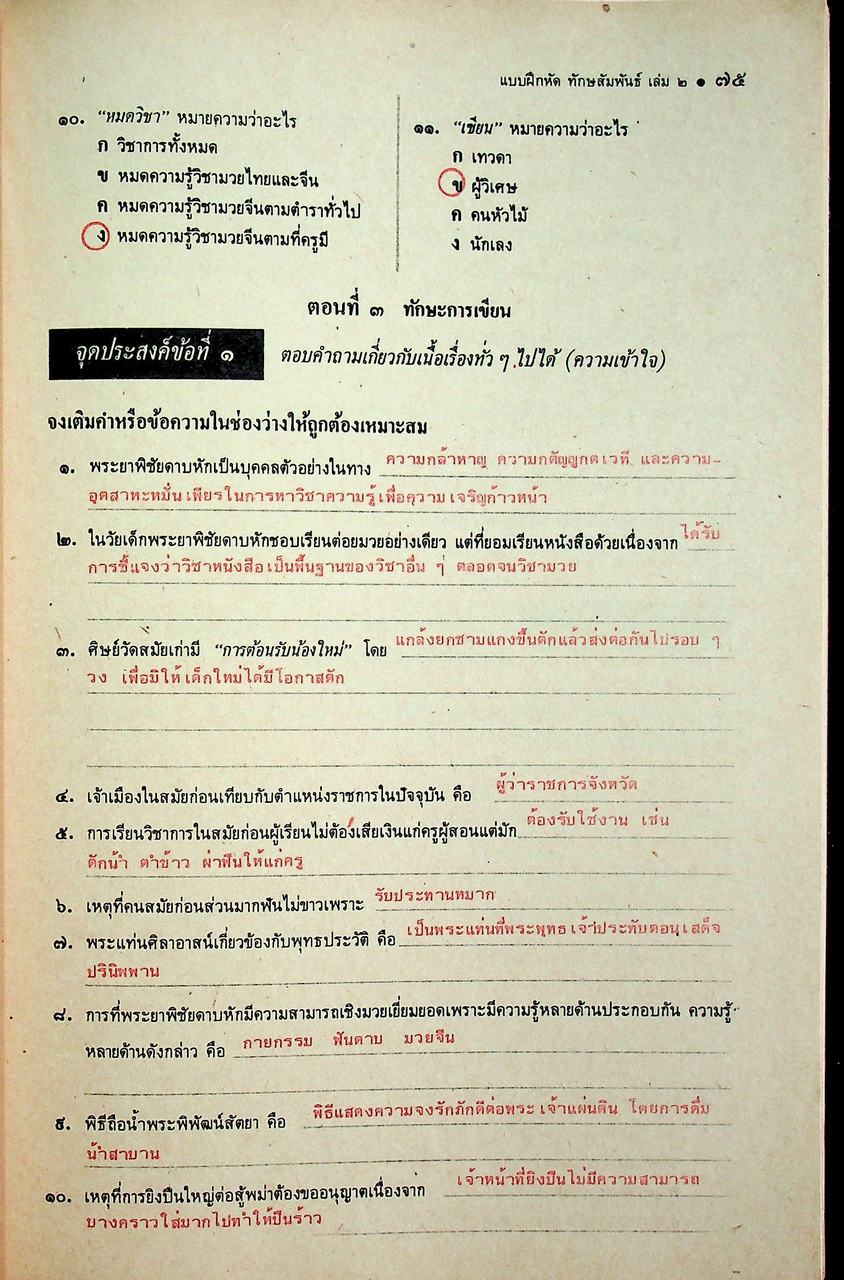 แบบฝึกหัด ทักษสัมพันธ์ เล่ม ๒ ● ๗๕
๑๐. “หมดวิชา” หมายความว่าอะไร
ก วิชาการทั้งหมด
ข หมดความรู้วิชามวยไทยและจีน
ค หมดความรู้วิชามวยจีนตามตำราทั่วไป
ง หมดความรู้วิชามวยจีนตามที่ครูมี
๑๑. “เซียน” หมายความว่าอะไร
ก เทวดา
ข ผู้วิเศษ
ค คนหัวไม้
ง นักเลง
ตอนที่ ๓ ทักษะการเขียน
จุดประสงค์ข้อที่ ๑ ตอบคำถามเกี่ยวกับเนื้อเรื่องทั่ว ๆ ไปได้ (ความเข้าใจ)
จงเติมคำหรือข้อความในช่องว่างให้ถูกต้องเหมาะสม
๑. พระยาพิชัยดาบหักเป็นบุคคลตัวอย่างในทาง ความกล้าหาญ ความกตัญญูกตเวที และความ-
อุตสาหะหมั่นเพียรในการหาวิชาความรู้เพื่อความเจริญก้าวหน้า
๒. ในวัยเด็กพระยาพิชัยดาบหักชอบเรียนต่อยมวยอย่างเดียว แต่ที่ยอมเรียนหนังสือด้วยเนื่องจาก ได้รับ
การชี้แจงว่าวิชาหนังสือเป็นพื้นฐานของวิชาอื่น ๆ ตลอดจนวิชามวย
๓. ศิษย์วัดสมัยเก่ามี “การต้อนรับน้องใหม่” โดย แกล้งยกชามแกงขึ้นตักแล้วส่งต่อกันไปรอบ ๆ
วง เพื่อมิให้เด็กใหม่ได้มีโอกาสตัก
๔. เจ้าเมืองในสมัยก่อนเทียบกับตำแหน่งราชการในปัจจุบัน คือ ผู้ว่าราชการจังหวัด
๕. การเรียนวิชาการในสมัยก่อนผู้เรียนไม่ต้องเสียเงินแก่ครูผู้สอนแต่มัก ต้องรับใช้งาน เช่น
ตักน้ำ ตำข้าว ผ่าฟืนให้แก่ครู
๖. เหตุที่คนสมัยก่อนส่วนมากฟันไม่ขาวเพราะ รับประทานหมาก
๗. พระแท่นศิลาอาสน์เกี่ยวข้องกับพุทธประวัติ คือ เป็นพระแท่นที่พระพุทธเจ้าประทับตอนเสด็จ
ปรินิพพาน
๘. การที่พระยาพิชัยดาบหักมีความสามารถเชิงมวยเยี่ยมยอดเพราะมีความรู้หลายด้านประกอบกัน ความรู้
หลายด้านดังกล่าว คือ กายกรรม ฟันดาบ มวยจีน
๙. พิธีถือน้ำพระพิพัฒน์สัตยา คือ พิธีแสดงความจงรักภักดีต่อพระเจ้าแผ่นดิน โดยการดื่ม
น้ำสาบาน
๑๐. เหตุที่การยิงปืนใหญ่ต่อสู้พม่าต้องขออนุญาตเนื่องจาก เจ้าหน้าที่ยิงปืนไม่มีความสามารถ
บางคราวใส่มากไปทำให้ปืนร้าว